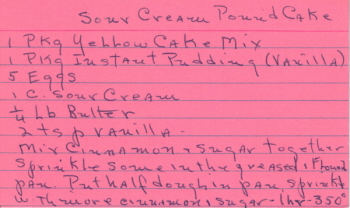 Sour Cream Pound Cake
1 Pkg Yellow Cake Mix
1 Pkg Instant Pudding (Vanilla)
5 Eggs
1 C. Sour Cream
1/4 Lb Butter
2 tsp Vanilla.
Mix Cinnamon & sugar together
Sprinkle some in the greased, Floured
pan. Put half dough in pan, sprinkle
w Th more cinnamon & sugar - 1 hr - 350°